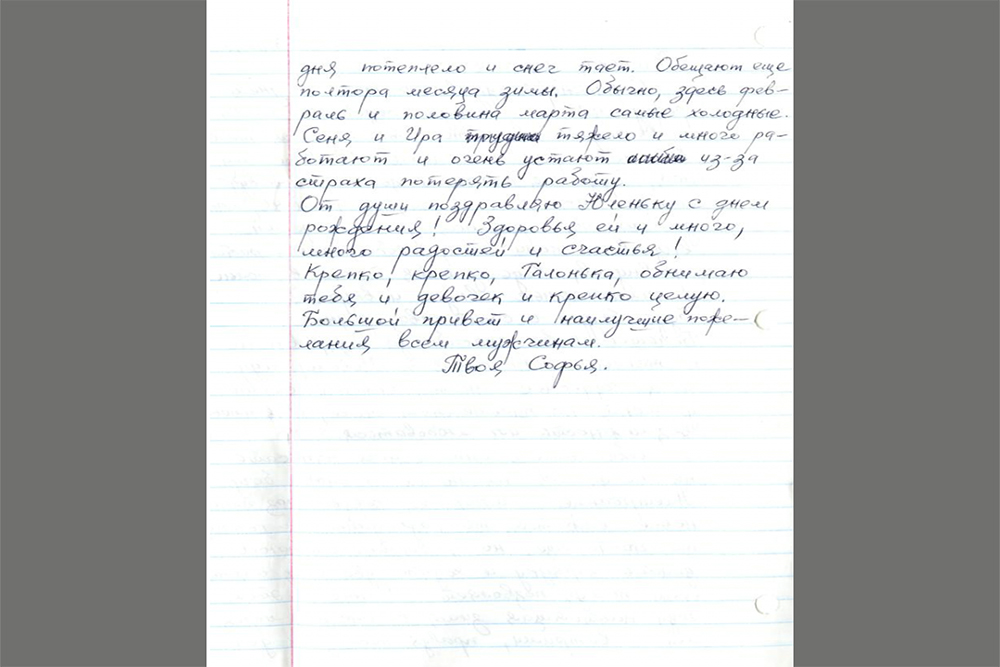 дня потеплело и снег тает. Обещают еще
полтора месяца зимы. Обычно, здесь фев-
раль и половина марта самые холодные.
Сеня и Ира трудно тяжело и много ра-
ботают и очень устают из-за
страха потерять работу.
От души поздравляю Юленьку с днем
рождения! Здоровья ей и много,
много радостей и счастья!
Крепко, крепко, Галонька, обнимаю
тебя и девочек и крепко целую.
Большой привет и наилучшие поже-
лания всем мужчинам.
Твоя Софья.